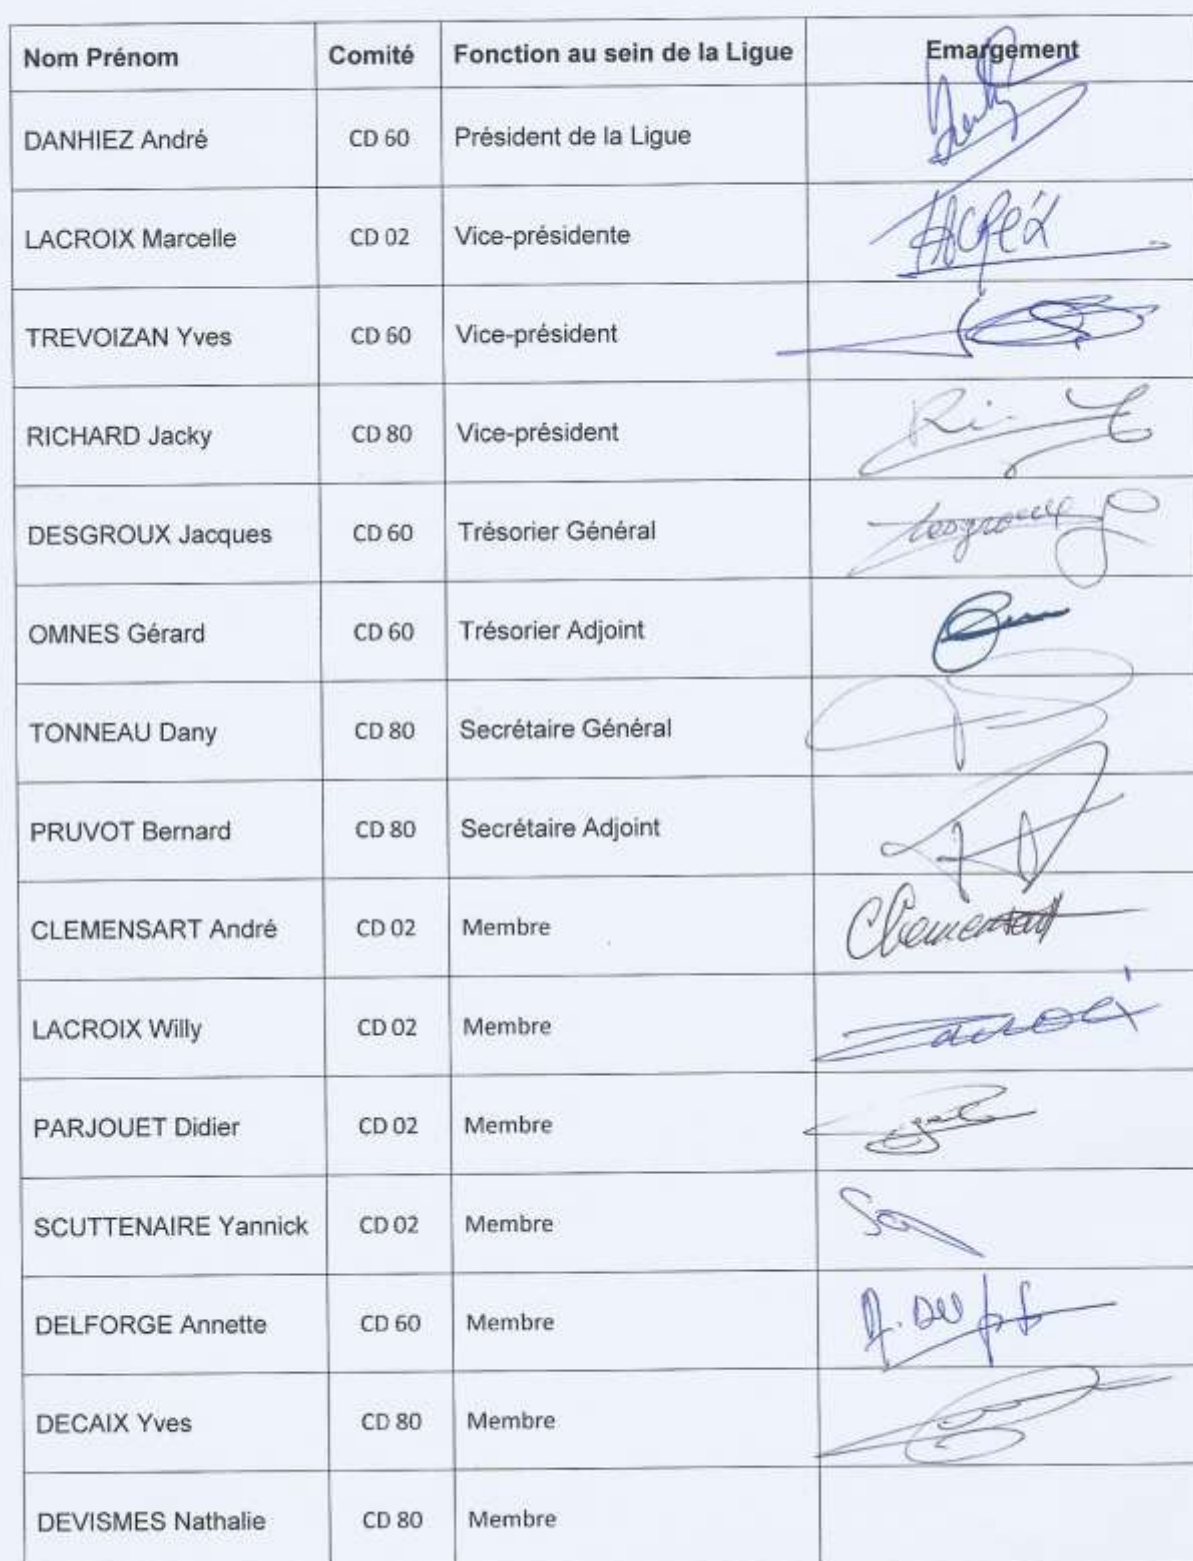 Nom Prénom Comité Fonction au sein de la Ligue Emargement
DANHIEZ André CD 60 Président de la Ligue
LACROIX Marcelle CD 02 Vice-présidente
TREVOIZAN Yves CD 60 Vice-président
RICHARD Jacky CD 80 Vice-président
DESGROUX Jacques CD 60 Trésorier Général
OMNES Gérard CD 60 Trésorier Adjoint
TONNEAU Dany CD 80 Secrétaire Général
PRUVOT Bernard CD 80 Secrétaire Adjoint
CLEMENSART André CD 02 Membre
LACROIX Willy CD 02 Membre
PARJOUET Didier CD 02 Membre
SCUTTENAIRE Yannick CD 02 Membre
DELFORGE Annette CD 60 Membre
DECAIX Yves CD 80 Membre
DEVISMES Nathalie CD 80 Membre